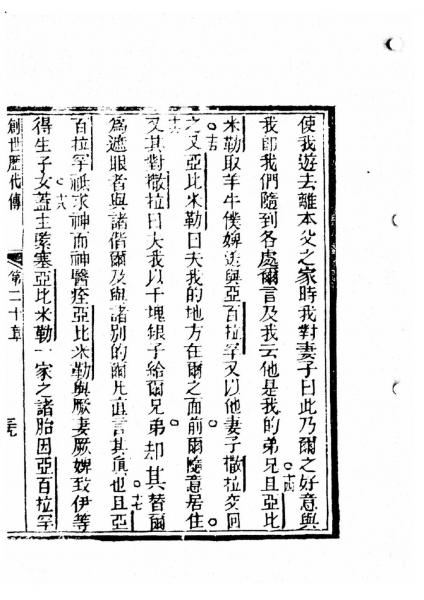 使我遊去離本父之家時我對妻子曰此乃爾之好意與
我卽我們隨到各處爾言及我云他是我的弟兄且亞比
十四
米勒取羊牛僕婢送與亞百拉罕又以他妻子撒拉交回
之又亞比米勒曰夫我的地方在爾之面前爾隨意居住
十五
又其對撒拉曰夫我以千塊银子給爾兄弟却其替爾
十六
為遮眼者與諸偕爾及與諸別的爾凡直言其真也且亞
十七
百拉罕祇求神而神醫痊亞比米勒與厥妻厥婢致伊等
得生子女蓋主緊塞亞比米勒一家之諸胎因亞百拉罕
十八
創世歷代傳
第二十章